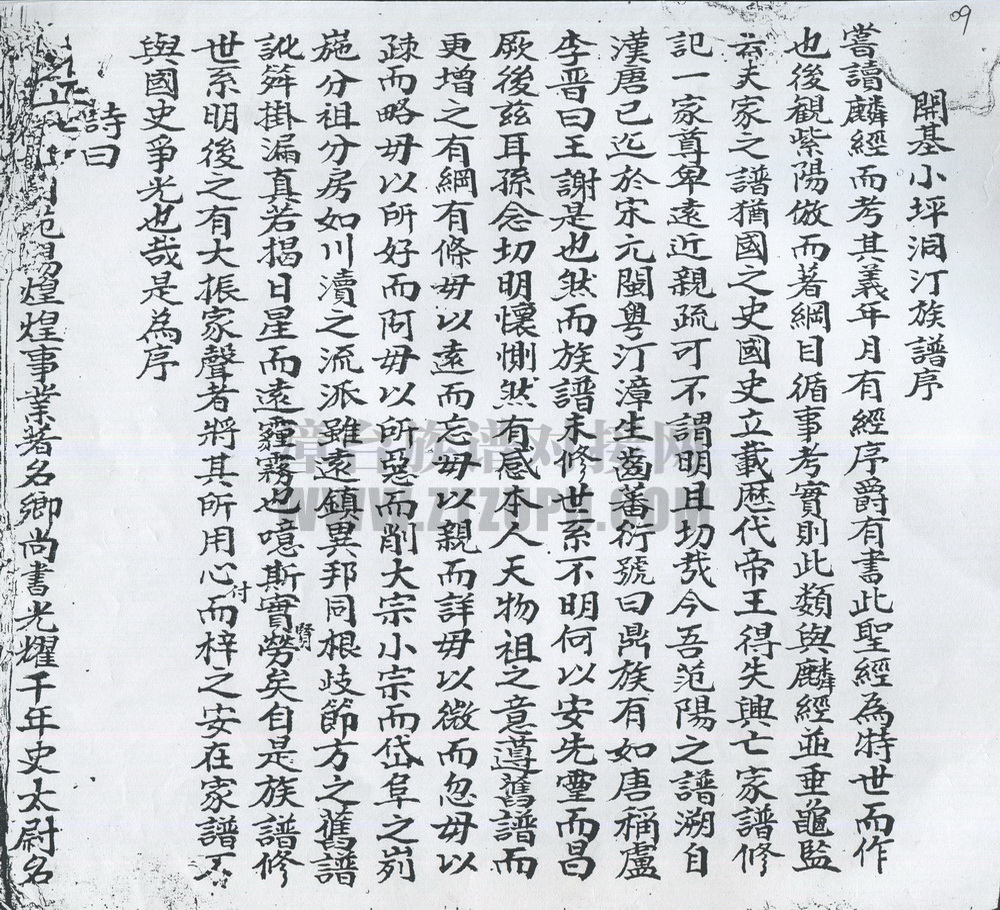 09
開基小坪洞汀族譜序
嘗讀麟經而考其義年月有經序爵有書此聖經為特世而作
也後観紫陽倣而著綱目循事考實則此類與麟經並垂龜監
云夫家之譜猶國之史國史立載歷代帝王得失興亡家譜修
記一家尊卑遠近親疏可不謂明且切哉今吾范陽之譜溯自
漢唐已迄於宋元閩粤汀漳生齒蕃衍號曰鼎族有如唐稱盧
李晋曰王謝是也然而族譜未修世系不明何以安先靈而昌
厥後兹耳孫念切明懷惻然有感本人天物祖之意遵舊譜而
更增之有綱有條毋以遠而忘毋以親而詳毋以微而忽毋以
疎而略毋以所好而阿毋以所惡而削大宗小宗而岱阜之峛
崺分祖分房如川瀆之流派雖遠鎮異邦同根歧節方之舊譜
訛舛掛漏真若揭日星而遠霾霧也噫斯實勞矣自是族譜修
賢
世系明後之有大振家聲者將其所用心而梓之安在家譜不
付
與國史爭光也哉是為序
詩曰
范陽煌煌事業著名卿尚書光耀千年史太尉名
漳台族谱对接网
WWW.ZTZUPU.COM